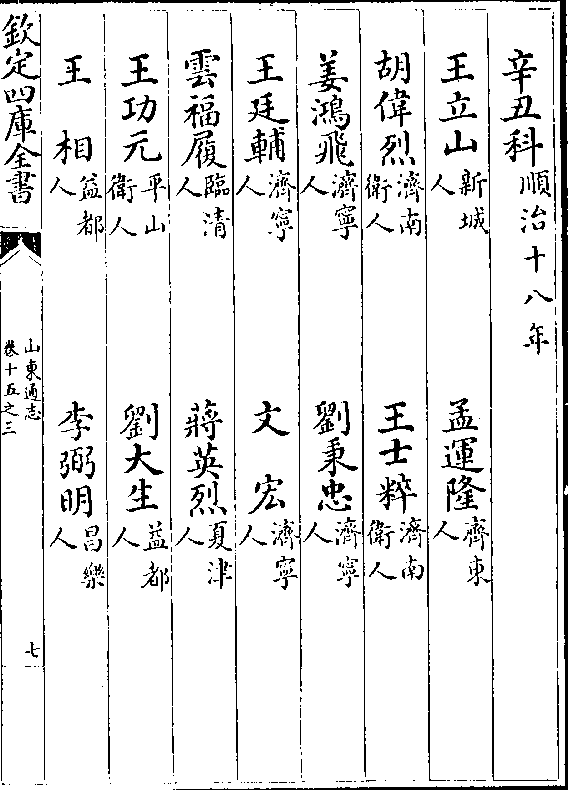 辛丑科順治十八年
王立山新城人 孟運隆齊東人
胡偉烈濟南衛人 王士粹濟南衛人
姜鴻飛濟寧人 劉秉忠濟寧人
王廷輔濟寧人 文宏濟寧人
雲福履臨清人 蔣英烈夏津人
王功元平山衛人 劉大生益都人
王相益都人 李弼明昌樂人
欽定四庫全書
山東通志
卷十五之三
七